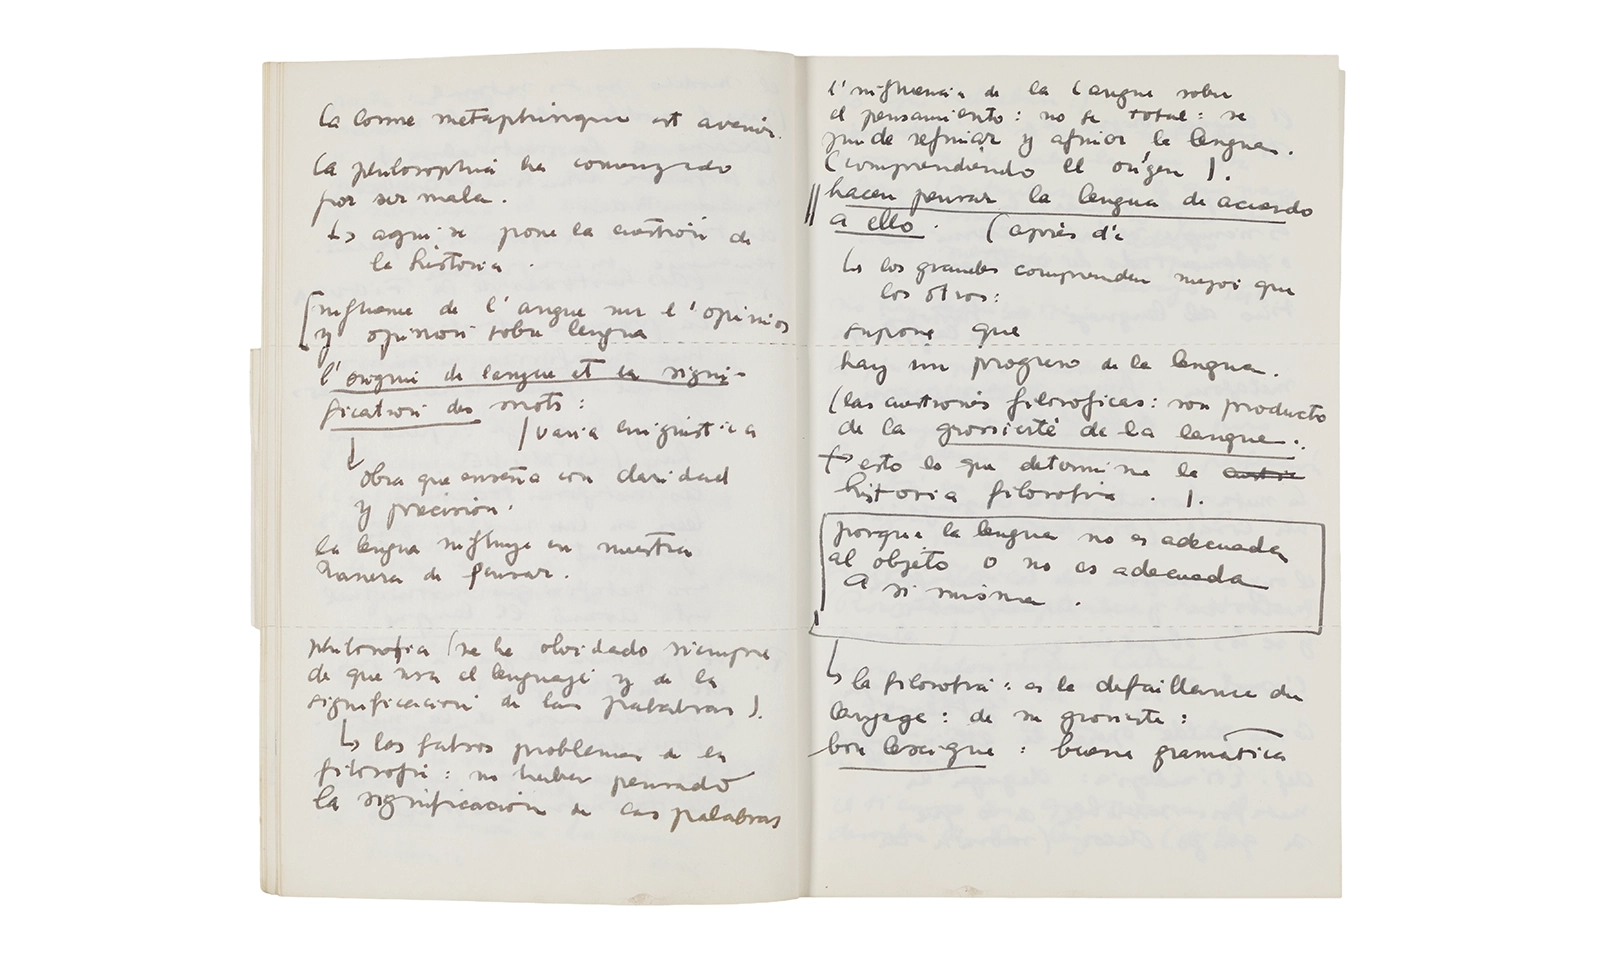 La bonne métaphysique est avenir.
La philosophia ha comenzado
por ser mala.
↳ aqui se pone la cuestión de
la historia.
[influence de l'angue sur l'opinion
y opinion sobre lengua
l'origini de langue et la signi-
fication des mots:
/varia enigmistica
obra que enseña con claridad
y precision.
la lengua influye en nuestra
manera de pensar.
philosofia (se ha olvidado siempre
de que usa el lenguaje y de la
significacion de las palabras).
↳ los falsos problemas de la
filosofia: no haber pensado
la significacion de las palabras
l'influencia de la langue sobre
el pensamiento: no se total: se
puede refinar y afinar la lengua.
(comprendiendo el orígen).
hacen pensar la lengua de acuerdo
a ello. (après d'i
↳ los grandes comprenden mejor que
los otros:
supone que
hay un progreso de la lengua.
(las cuestiones filosoficas: son producto
de la grossierté de la langue.
esto lo que determina la
historia filosofia.).
porque la lengua no es adecuada
al objeto o no es adecuada
a si misma.
↳ la filosofia: es la defaillance du
langage: de su grossierte:
bon langue: buena gramática